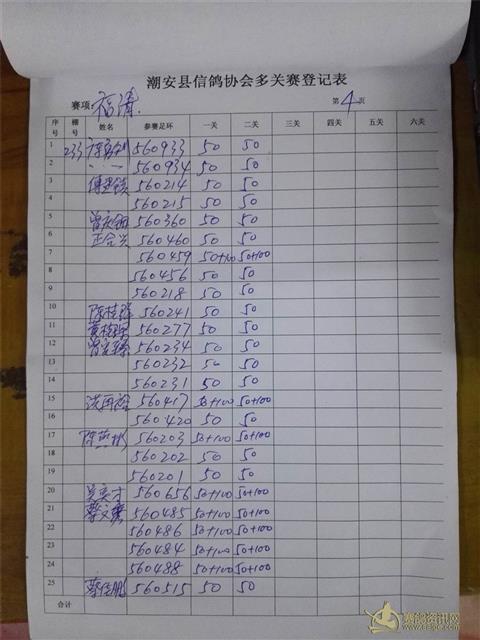 潮安县信鸽协会多关赛登记表
赛项: 福清 第 4 页
序号 棚号 姓名 参赛足环 一关 二关 三关 四关 五关 六关
1 233 560933 50 50
2 560934 50 50
3 560214 50 50
4 560215 50 50
5 560360 50 50
6 正合兴 560460 50 50
7 560459 50+100 50+100
8 560456 50 50
9 560218 50 50
10 陈桂辉 560241 50 50
11 560277 50 50
12 560234 50 50
13 560232 50 50
14 560231 50 50
15 560417 50+100 50+100
16 560420 50 50
17 560203 50+100 50+100
18 560202 50 50
19 560201 50 50
20 吴英才 560656 50+100 50+100
21 560485 50+100 50+100
22 560486 50+100 50+100
23 560484 50+100 50+100
24 560488 50+100 50+100
25 蔡佳鹏 560515 50 50
合计
赛鸽资讯网